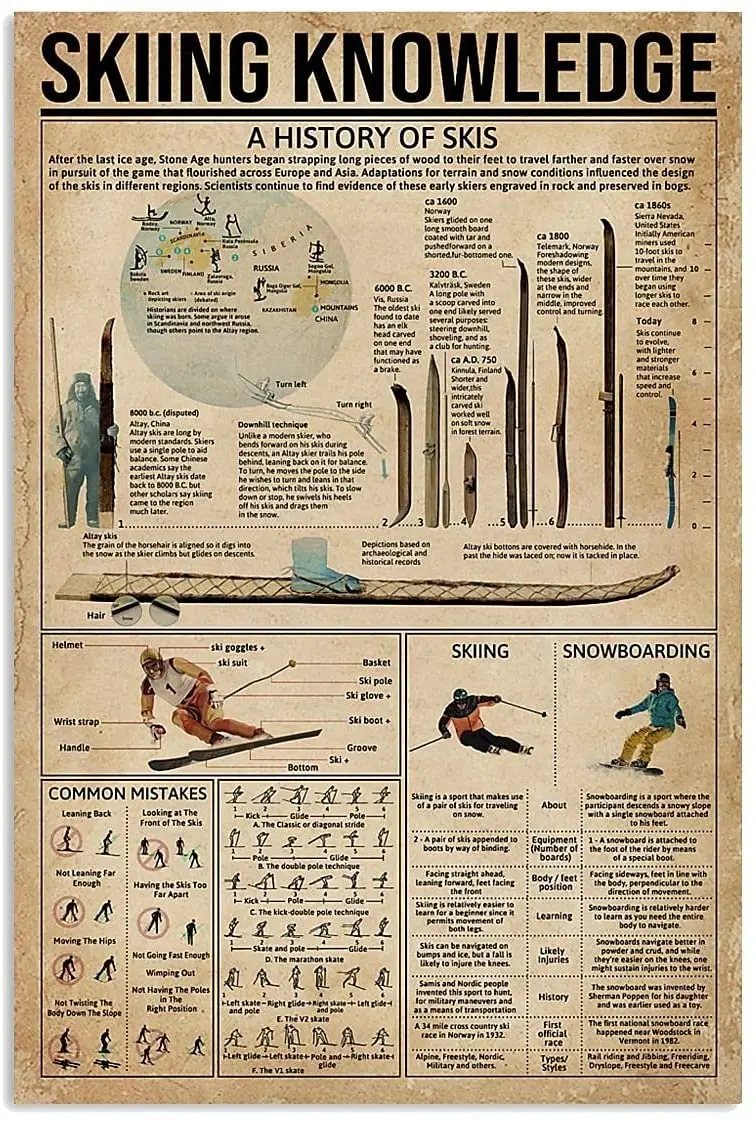 SKIING KNOWLEDGE
A HISTORY OF SKIS
After the last ice age, Stone Age hunters began strapping long pieces of wood to their feet to travel farther and faster over snow
in pursuit of the game that flourished across Europe and Asia. Adaptations for terrain and snow conditions influenced the design
of the skis in different regions. Scientists continue to find evidence of these early skiers engraved in rock and preserved in bogs.
NORWAY
Alta,
Norway
SCANDINAVIA
Kola Peninsula
Russia
SIBERIA
RUSSIA
SWEDEN
FINLAND
MONGOLIA
KAZAKHSTAN
MOUNTAINS
CHINA
Rock art
depicting skiers
Area of ski origin
(debated)
Historians are divided on where
skiing was born. Some argue it arose
in Scandinavia and northwest Russia,
though others point to the Altay region.
Turn left
Turn right
8000 b.c. (disputed)
Altay, China
Altay skis are long by
modern standards. Skiers
use a single pole to aid
balance. Some Chinese
academics say the
earliest Altay skis date
back to 8000 B.C. but
other scholars say skiing
came to the region
much later.
Downhill technique
Unlike a modern skier, who
bends forward on his skis during
descents, an Altay skier trails his pole
behind, leaning back on it for balance.
To turn, he moves the pole to the side
he wishes to turn and leans in that
direction, which tilts his ski. To slow
down or stop, he swivels his heels
off his skis and drags them
in the snow.
6000 B.C.
Vis, Russia
The oldest ski
found to date
has an elk
head carved
on one end
that may have
functioned as
a brake.
3200 B.C.
Kalvträsk, Sweden
A long pole with
a scoop carved into
one end likely served
several purposes:
steering downhill,
shoveling, and as
a club for hunting.
ca A.D. 750
Kinnula, Finland
Shorter and
wider,this
intricately
carved ski
worked well
on soft snow
in forest terrain.
ca 1600
Norway
Skiers glided on one
long smooth board
coated with tar and
pushedforward on a
shorted,fur-bottomed one.
ca 1800
Telemark, Norway
Foreshadowing
modern designs,
the shape of
these skis, wider
at the ends and
narrow in the
middle, improved
control and turning.
ca 1860s
Sierra Nevada,
United States
Initially American
miners used
10-foot skis to
travel in the
mountains, and
over time they
began using
longer skis to
race each other.
Today
Skis continue
to evolve,
with lighter
and stronger
materials
that increase
speed and
control.
10
8
6
4
2
0
1 2 3 4 5 6
Altay skis
The grain of the horsehair is aligned so it digs into
the snow as the skier climbs but glides on descents.
Depictions based on
archaeological and
historical records
Altay ski bottoms are covered with horsehide. In the
past the hide was laced on; now it is tacked in place.
Hair
Snow
Helmet
ski goggles +
ski suit
Basket
Ski pole
Ski glove +
Wrist strap
Ski boot +
Handle
Groove
Ski +
Bottom
1
COMMON MISTAKES
Leaning Back
Looking at The
Front of The Skis
Not Leaning Far
Enough
Having the Skis Too
Far Apart
Moving The Hips
Not Going Fast Enough
Wimping Out
Not Twisting The
Body Down The Slope
Not Having The Poles
in The
Right Position
1 2 3 4 5 6
Kick Glide Pole
A. The Classic or diagonal stride
1 2 3 4 5 6
Pole Glide
B. The double pole technique
1 2 3 4 5 6
Kick Pole Glide
C. The kick-double pole technique
1 2 3 4 5 6
Skate and pole Glide
D. The marathon skate
1 2 3 4 5 6
Left skate Right glide Right skate Left glide
and pole and pole
E. The V2 skate
1 2 3 4 5 6
Left glide Left skate Pole and Right skate
glide
F. The V1 skate
SKIING
SNOWBOARDING
Skiing is a sport that makes use
of a pair of skis for traveling
on snow.
About
Snowboarding is a sport where the
participant descends a snowy slope
with a single snowboard attached
to his feet.
2 - A pair of skis appended to
boots by way of binding.
Equipment
(Number of
boards)
1 - A snowboard is attached to
the foot of the rider by means
of a special boot.
Facing straight ahead,
leaning forward, feet facing
the front
Body / feet
position
Facing sideways, feet in line with
the body, perpendicular to the
direction of movement.
Skiing is relatively easier to
learn for a beginner since it
permits movement of
both legs.
Learning
Snowboarding is relatively harder
to learn as you need the entire
body to navigate.
Skis can be navigated on
bumps and ice, but a fall is
likely to injure the knees.
Likely
Injuries
Snowboards navigate better in
powder and crud, and while
they're easier on the knees, one
might sustain injuries to the wrist.
Samis and Nordic people
invented this sport to hunt,
for military maneuvers and
as a means of transportation
History
The snowboard was invented by
Sherman Poppen for his daughter
and was earlier used as a toy.
A 34 mile cross country ski
race in Norway in 1932.
First
official
race
The first national snowboard race
happened near Woodstock in
Vermont in 1982.
Alpine, Freestyle, Nordic,
Military and others.
Types/
Styles
Rail riding and Jibbing, Freeriding,
Dryslope, Freestyle and Freecarve